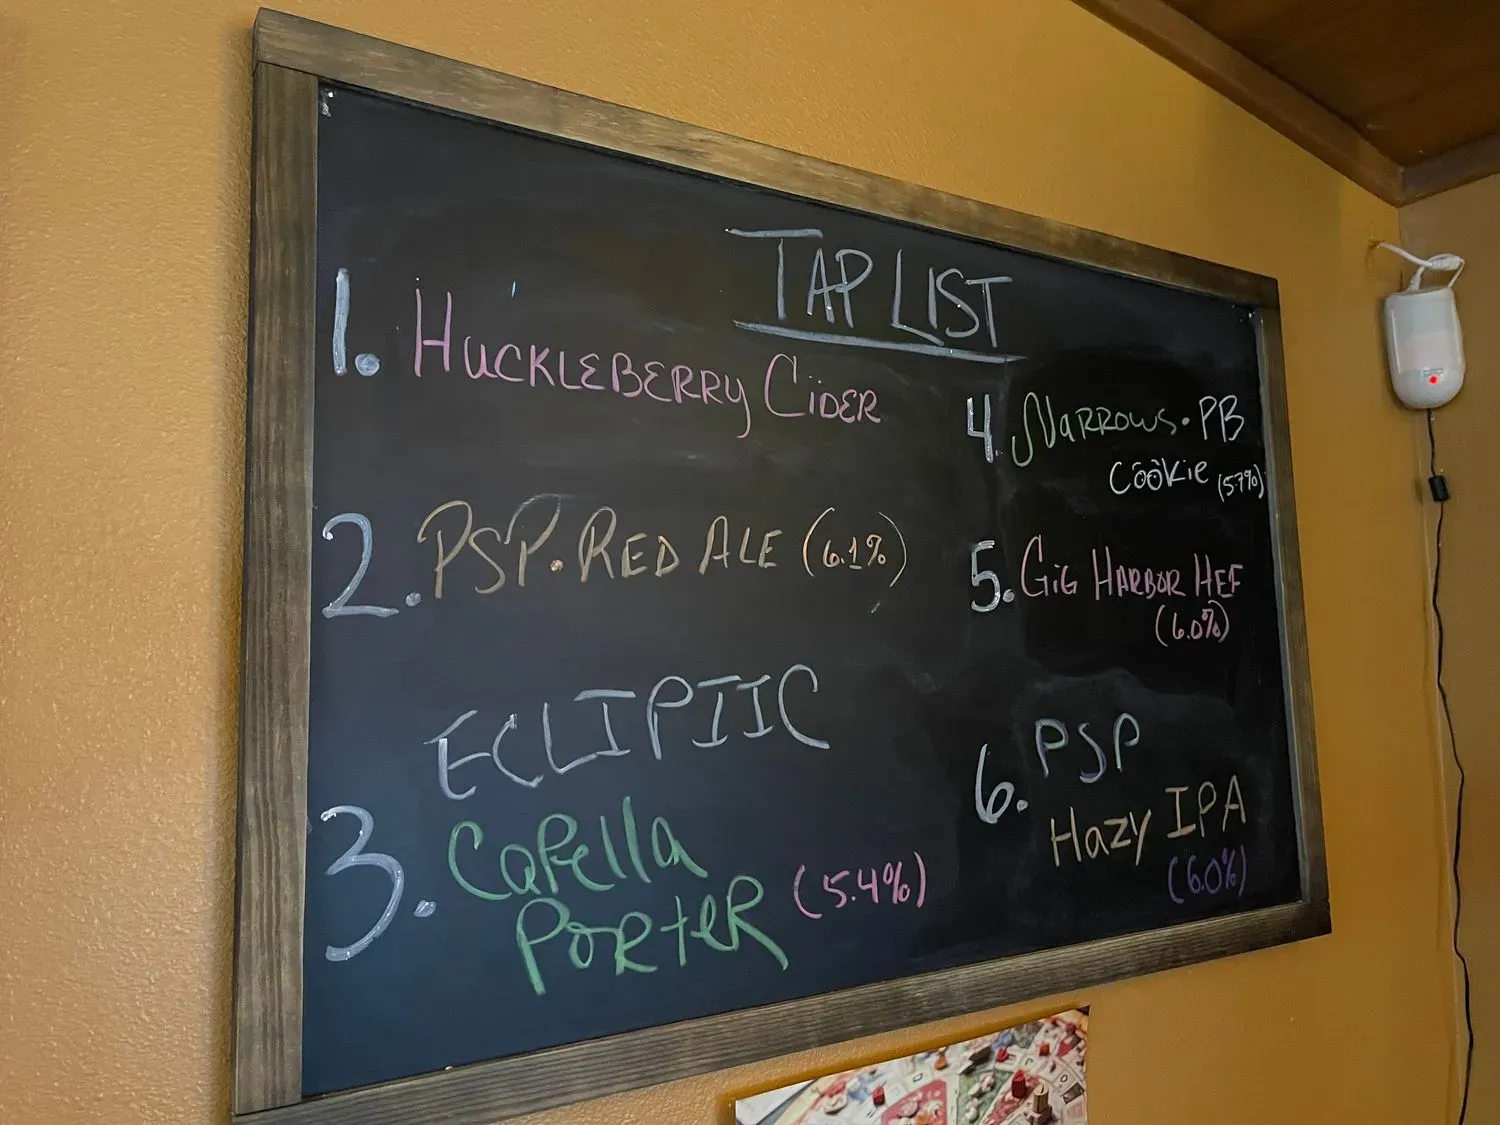 TAP LIST
1. HUCKLEBERRY CIDER
2. PSP. RED ALE (6.1%)
ECLIPTIC
3. Capella
PORTER (5.4%)
4. NARROWS. PB
COOKIE (5.7%)
5. GIG HARBOR HEF
(6.0%)
6. PSP
Hazy IPA
(6.0%)